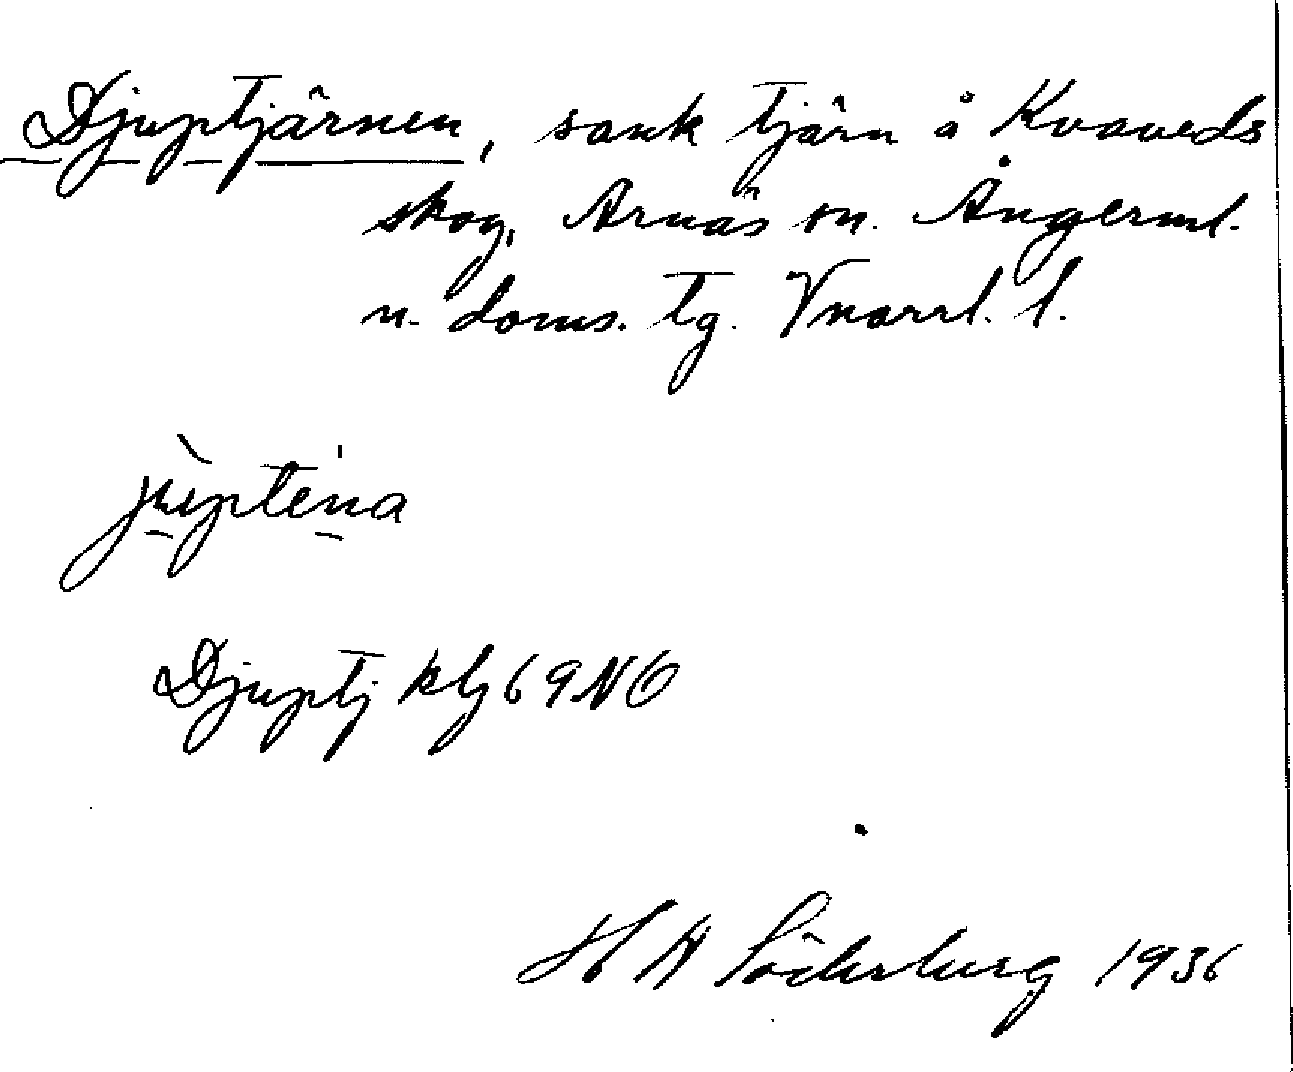 Djuptjärnen, sank tjärn å Kvaveds
skog, Arnäs sn. Ångerml.
n. doms. tg. Vnorrl. l.
jùpteˈna
Djuptj kbg 69 NO
H N Söderberg 1936